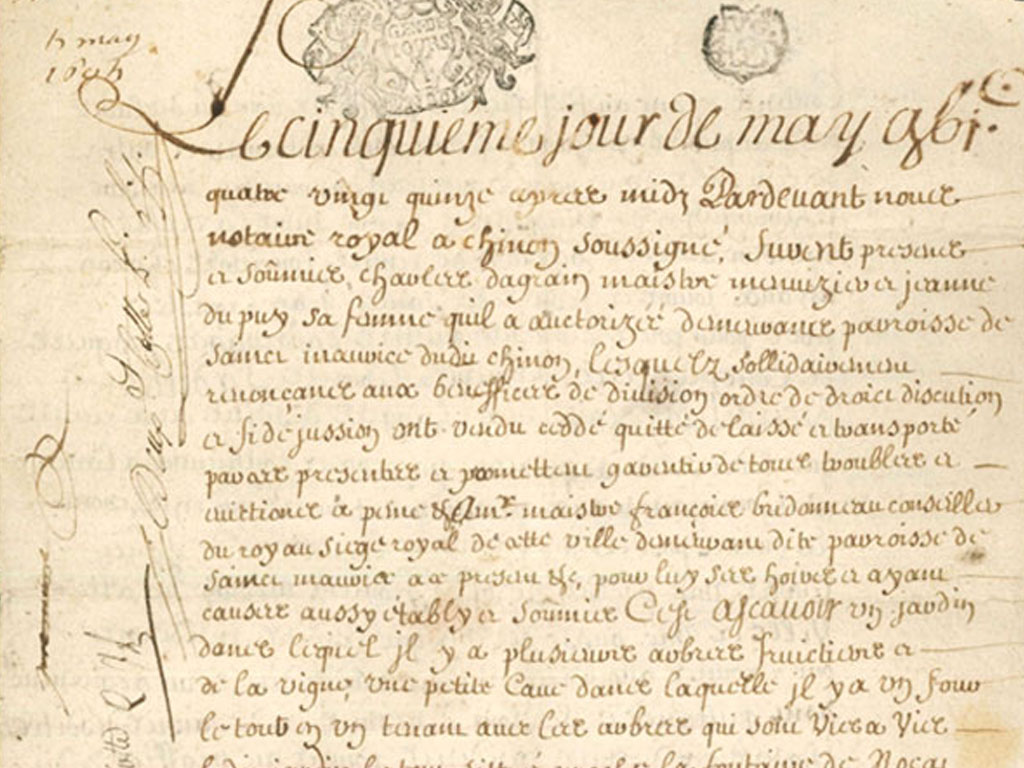 5 may
1695
Le cinquiéme jour de may gbi.c
quatre vingt quinze apres midy Pardevant nous
notaire royal a chinon soussigné, furent presents
et soumis, charles dagrain maistre menuizier et jeanne
du puy sa femme quil a auctorizée demeurants parroisse de
sainct maurice dudit chinon, lesquelz sollidairement
renonçants aux beneffices de division ordre de droict discution
et fidéjussion ont vendu ceddé quitté delaissé et transporté
par ces presentes et promettent garentir de tous troubles et
evictions a peine &c a Mr. maistre françois bridonneau conseiller
du roy au siege royal de cette ville demeurant dite parroisse de
sainct maurice a ce present &c, pour luy ses hoirs et ayant
causes aussy étably et soumis C'est ascavoir un jardin
dans lequel jl y a plusieurs arbres fruictiers et
de la vigne, une petite cave dans laquelle jl y a un four
le tout en un tenant avec les arbres qui sont vis a vis
la fontaine de